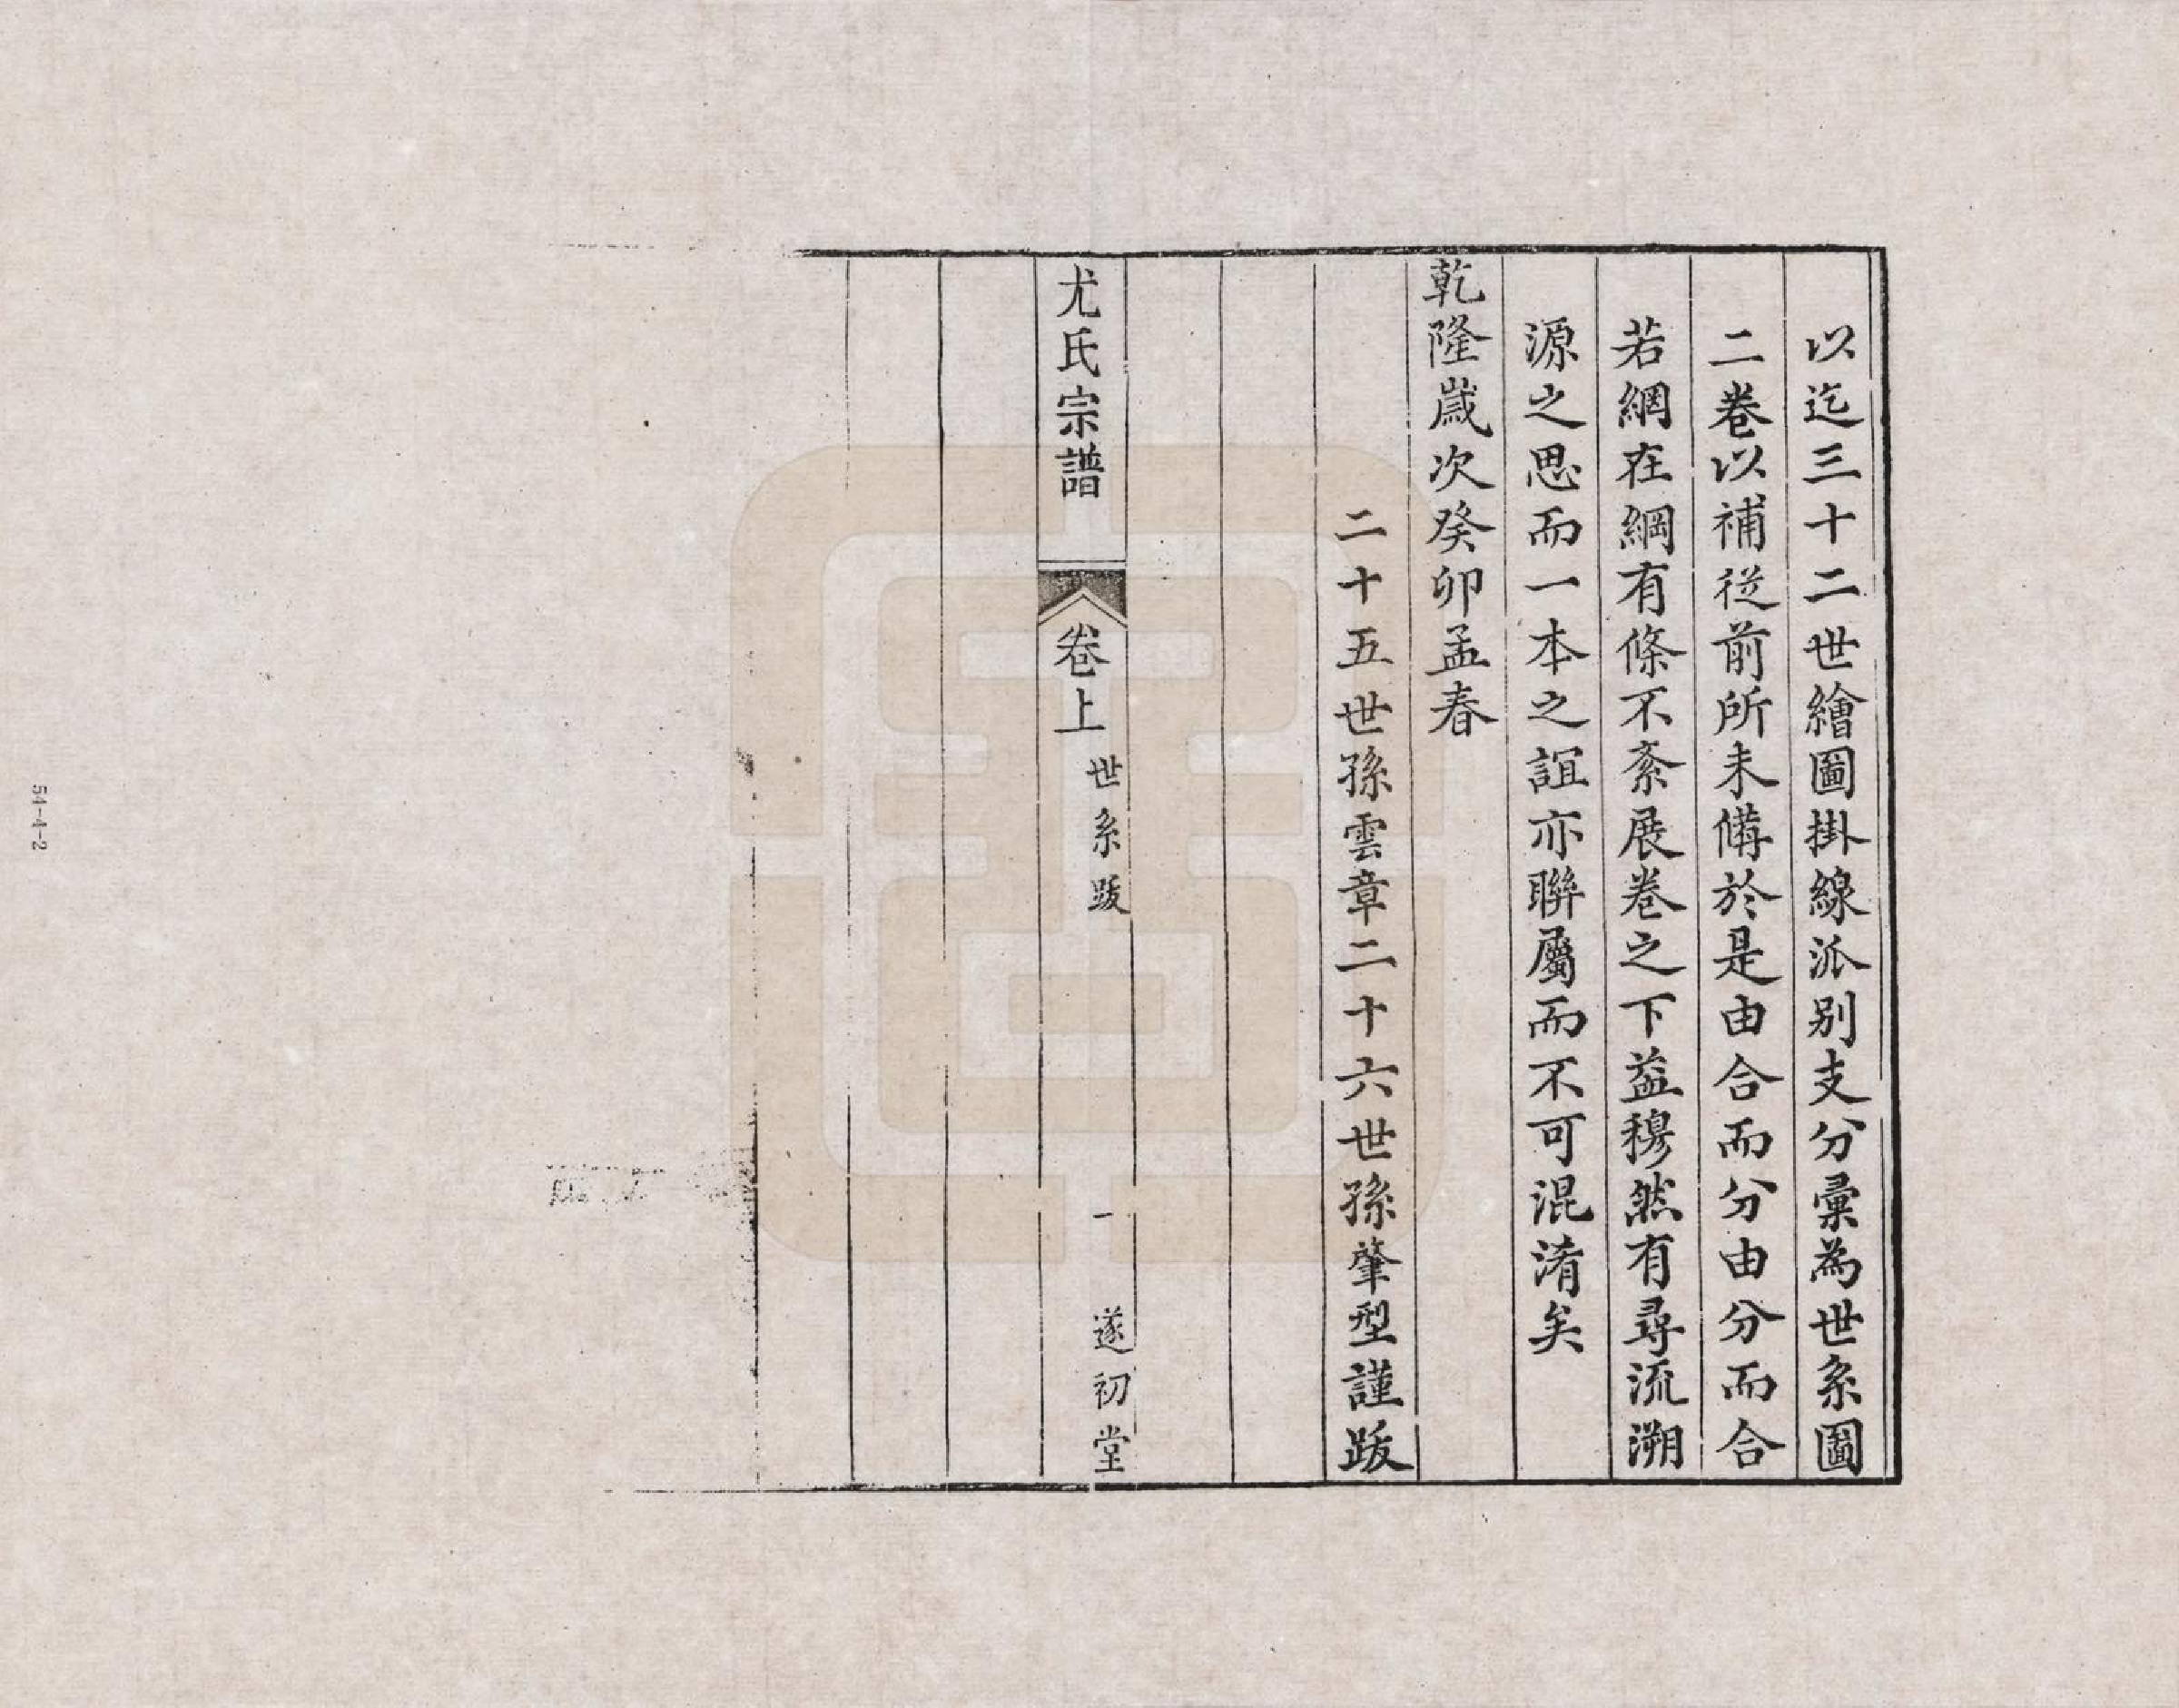 以迄三十二世繪圖掛線派别支分彙為世系圖
二卷以補從前所未備於是由合而分由分而合
若網在綱有條不紊展卷之下益穆然有尋流溯
源之思而一本之誼亦聯屬而不可混淆矣
乾隆歲次癸卯孟春
二十五世孫雲章二十六世孫肇型謹跋
尤氏宗譜
卷上
世系跋
一
遂初堂
54-4-2